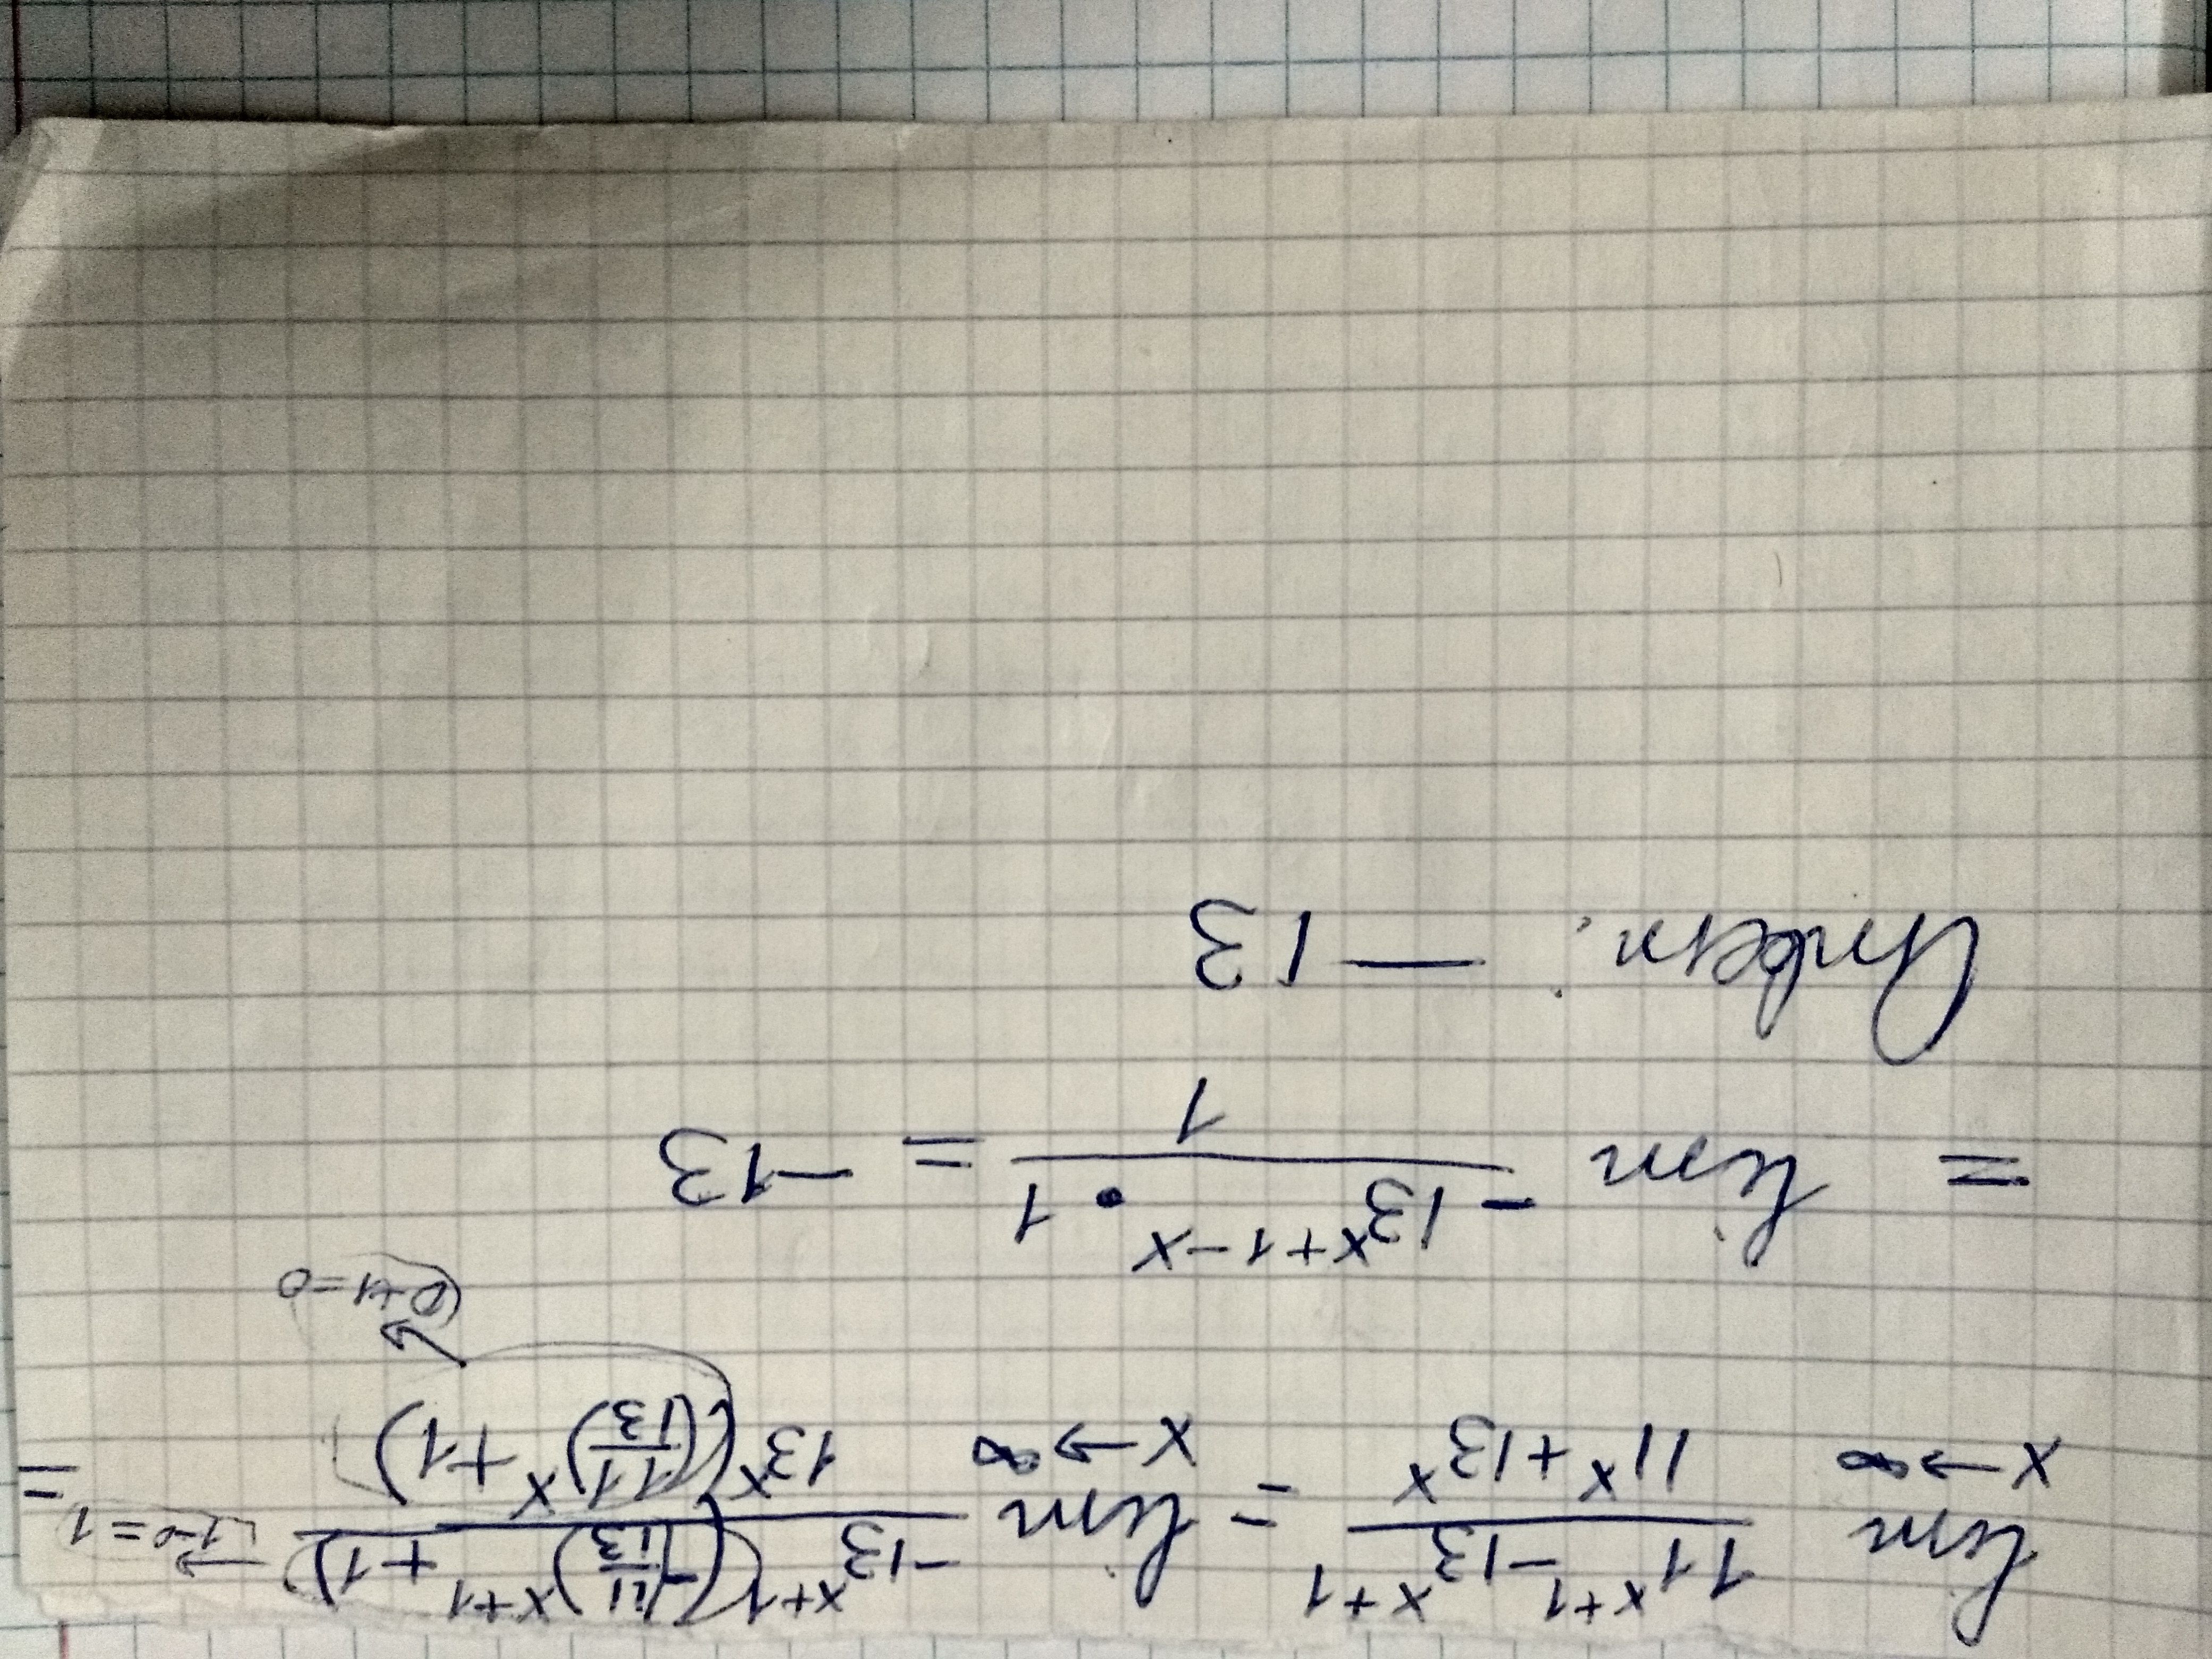 lim x→∞ (11^(x+1) − 13^(x+1)) / (11^x + 13^x) = lim x→∞ (−13^(x+1) (−(11/13)^(x+1) + 1)) / (13^x ((11/13)^x + 1)) → 1−0=1 =
= lim (−13^(x+1−x) • 1) / 1 = −13
Ответ: —13